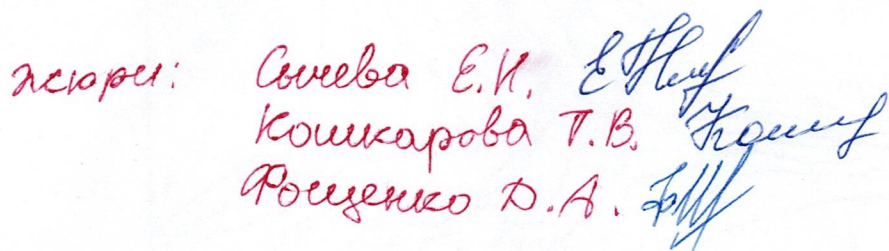 жюри: Сычева Е.И.
Кошкарова Т.В.
Фощенко Д.А.